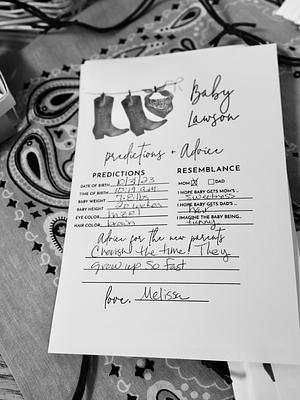 Baby
Lawson
predictions + Advice
PREDICTIONS
DATE OF BIRTH 10/3/23
TIME OF BIRTH 10:19 a.m.
BABY WEIGHT 7.8 lbs
BABY HEIGHT 20 inches
EYE COLOR hazel
HAIR COLOR brown
RESEMBLANCE
MOM ☒ ☐ DAD
I HOPE BABY GETS MOM'S..
Sweetness
I HOPE BABY GETS DAD'S ..
hair
I IMAGINE THE BABY BEING..
funny
Advice for the new parents
Cherish the time! They
grow up so fast
love, Melissa